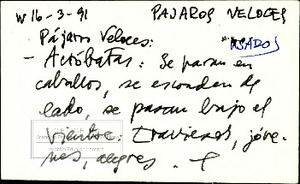 W 16-3-91 PAJAROS VELOCES
Pájaros Veloces: "USADOS"
- Acróbatas: Se paran en
caballos, se esconden de
lado, se pasan bajo el
vientre. Traviesos, jóve-
nes, alegres.